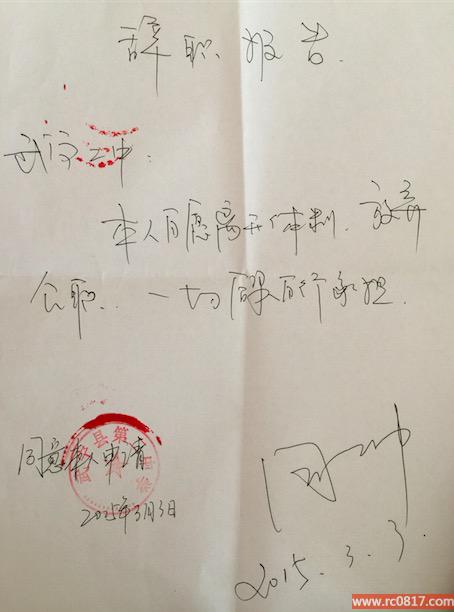 辞职报告.
二中:
本人自愿离开体制,放弃
公职.一切后果自行承担.
县第
同意本人申请
2015年3月3日
2015.3.3.
www.rc0817.com